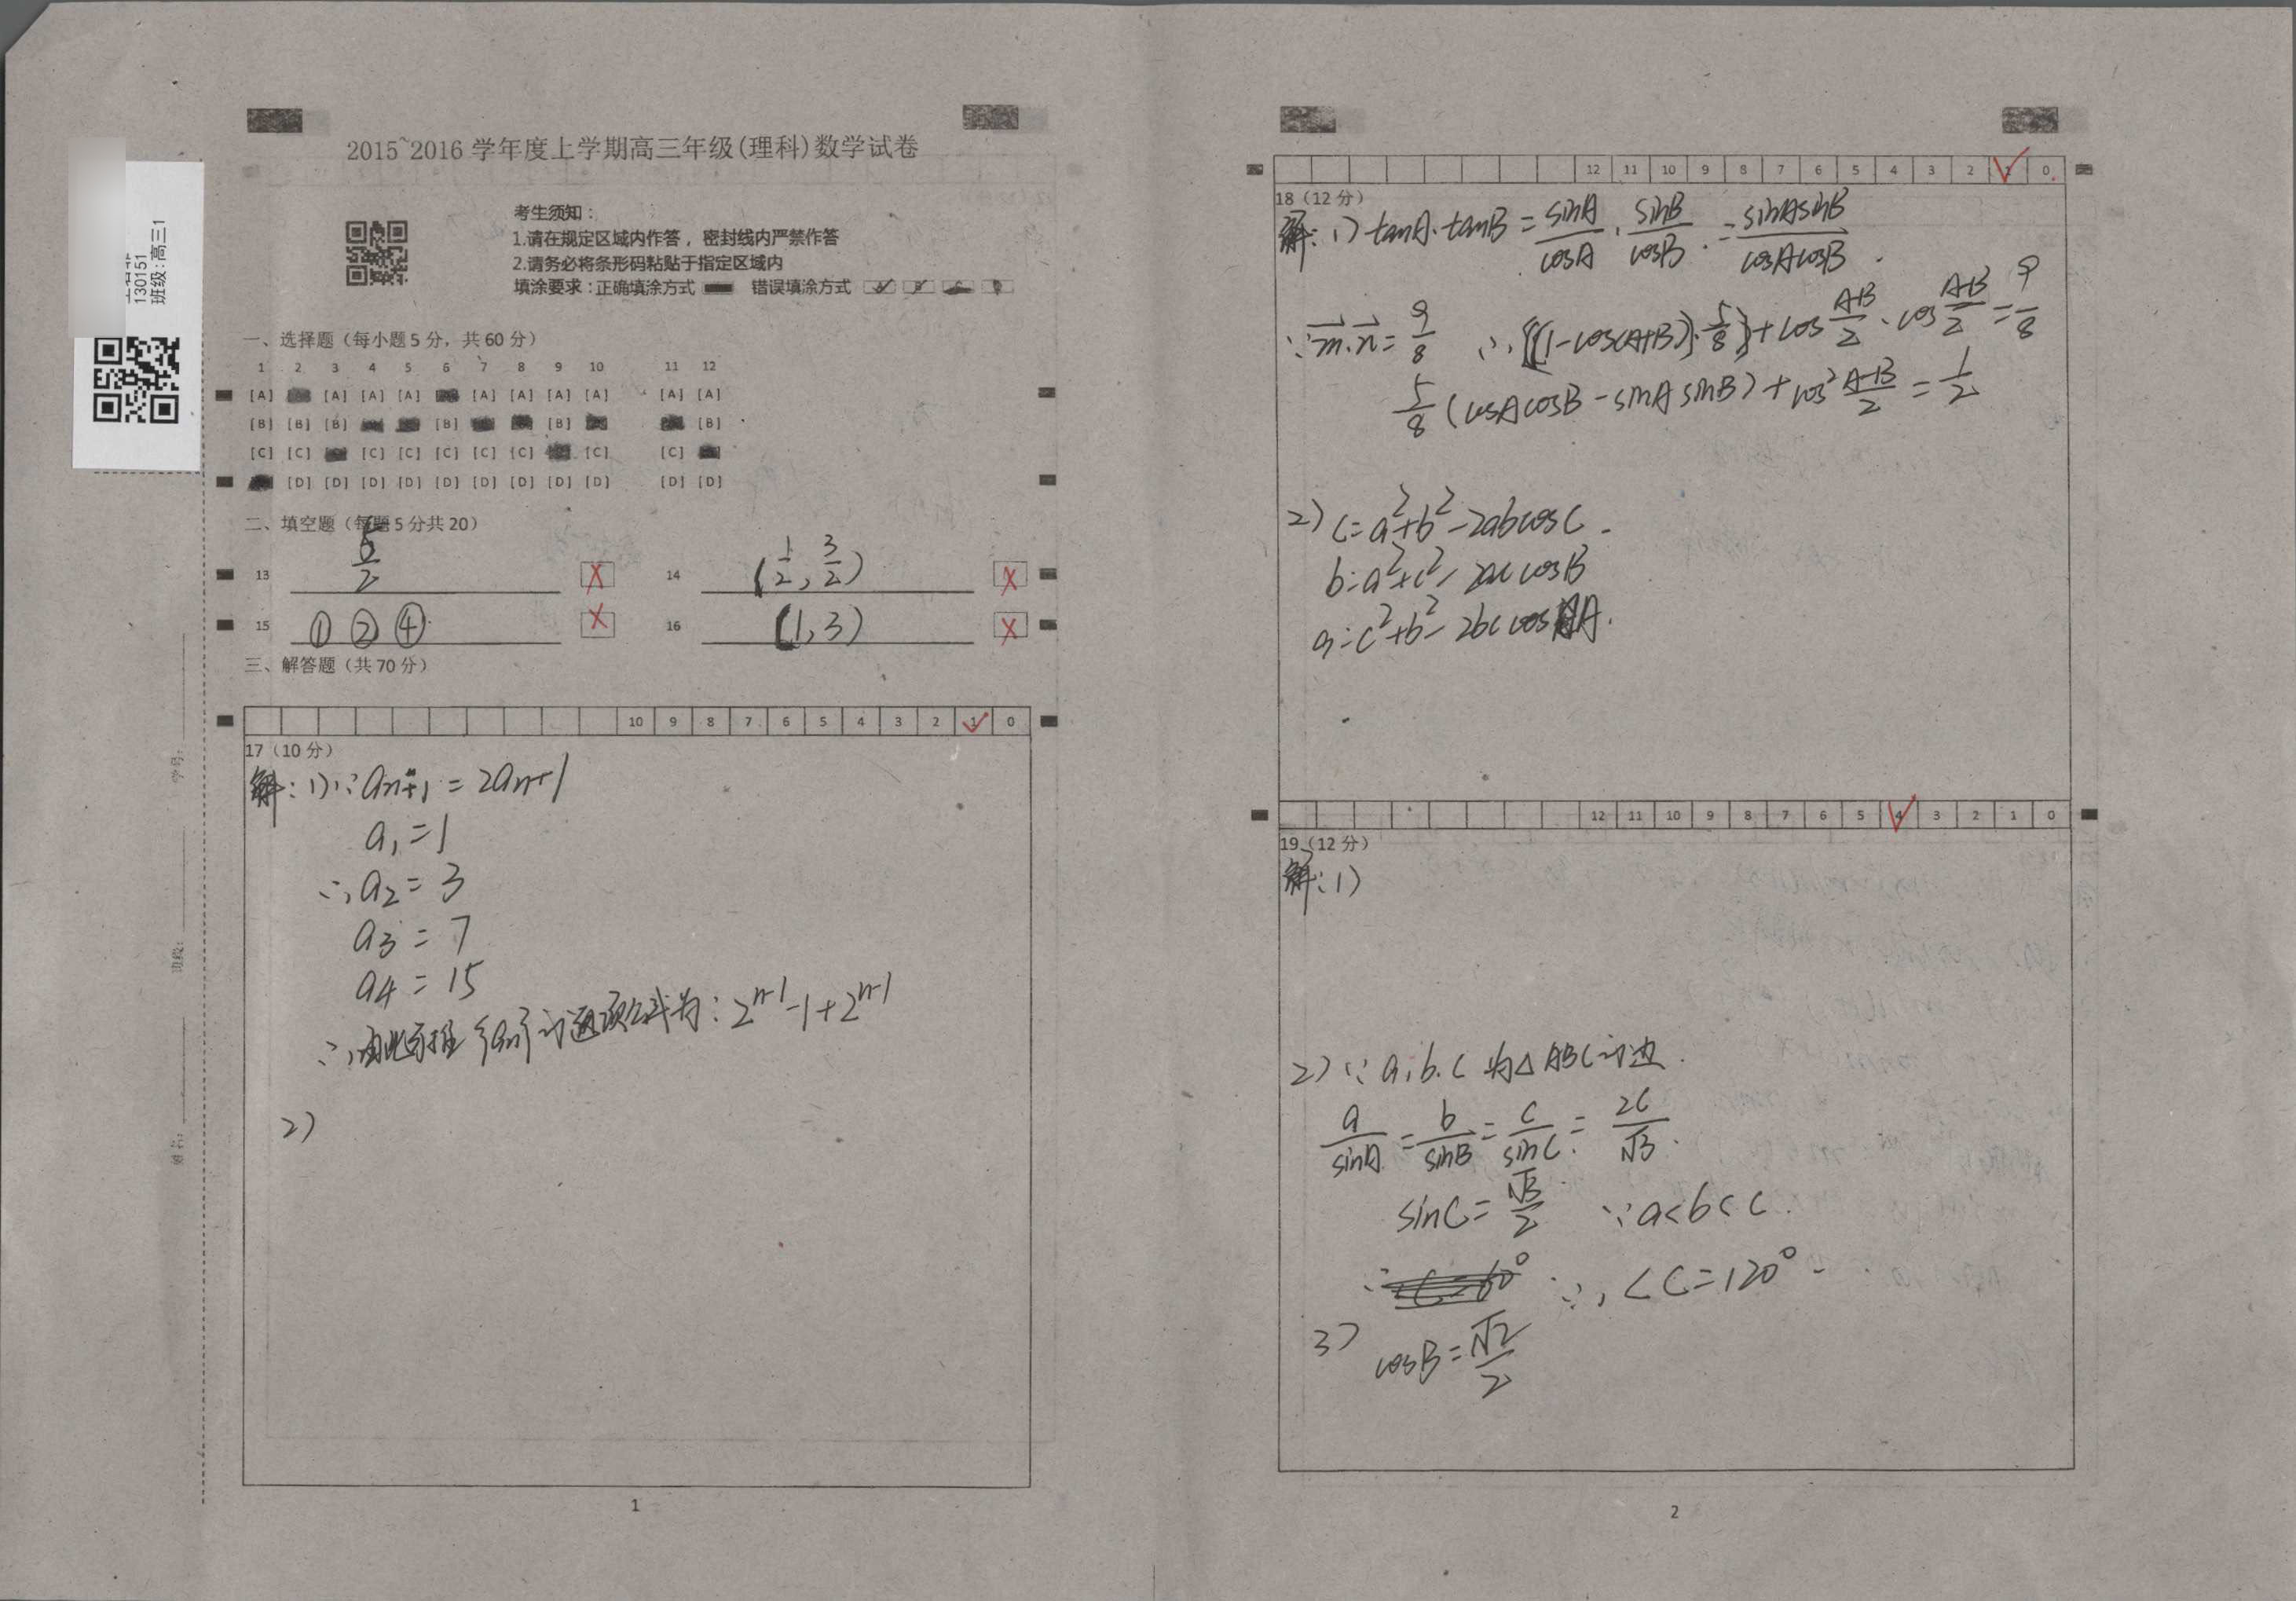 2015~2016 学年度上学期高三年级(理科)数学试卷
考生须知：
1.请在规定区域内作答，密封线内严禁作答
2.请务必将条形码粘贴于指定区域内
填涂要求：正确填涂方式 错误填涂方式
130151
班级:高三1
一、选择题（每小题 5 分，共 60 分）
1 2 3 4 5 6 7 8 9 10 11 12
[A] [A] [A] [A] [A] [A] [A] [A] [A] [A]
[B] [B] [B] [B] [B] [B]
[C] [C] [C] [C] [C] [C] [C] [C] [C]
[D] [D] [D] [D] [D] [D] [D] [D] [D] [D] [D]
二、填空题（每题 5 分共 20）
13 5/2 X 14 (1/2, 3/2) X
15 ① ② ④ X 16 (1, 3) X
三、解答题（共 70 分）
10 9 8 7 6 5 4 3 2 1 0
17（10 分）
解: 1) ∵ aₙ₊₁ = 2aₙ+1
a₁ = 1
∴ a₂ = 3
a₃ = 7
a₄ = 15
∴ 由此可推 {aₙ} 的通项公式为: 2ⁿ⁻¹-1+2ⁿ⁻¹
2)
学号:
班级:
姓名:
1
12 11 10 9 8 7 6 5 4 3 2 1 0
18（12 分）
解: 1) tanA·tanB = sinA/cosA · sinB/cosB = sinAsinB/cosAcosB
∵ m·n = 9/8 ∴ {[1-cos(A+B)]·5/8}+cos (A-B)/2 · cos (A-B)/2 = 9/8
5/8 (cosAcosB - sinAsinB) + cos² (A-B)/2 = 1/2
2) c = a²+b²-2abcosC
b = a²+c²-2accosB
a = c²+b²-2bccosA.
12 11 10 9 8 7 6 5 4 3 2 1 0
19（12 分）
解: 1)
2) ∵ a, b, c 为△ABC的边.
a/sinA = b/sinB = c/sinC = 2c/√3.
sinC = √3/2 ∵ a<b<c.
∴ C=60° ∴ ∠C=120°
3) cosB = √2/2
2